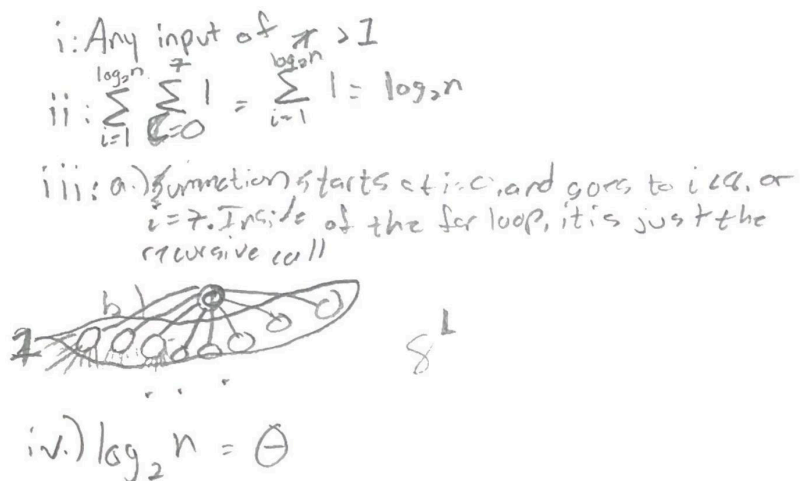 i: Any input of n > 1
ii: \sum_{i=1}^{log_2 n} \sum_{i=0}^{7} 1 = \sum_{i=1}^{log_2 n} 1 = log_2 n
iii: a.) Summation starts at i=0, and goes to i<8, or
i=7. Inside of the for loop, it is just the
recursive call
b)
1
8^L
. . .
iv.) log_2 n = Θ